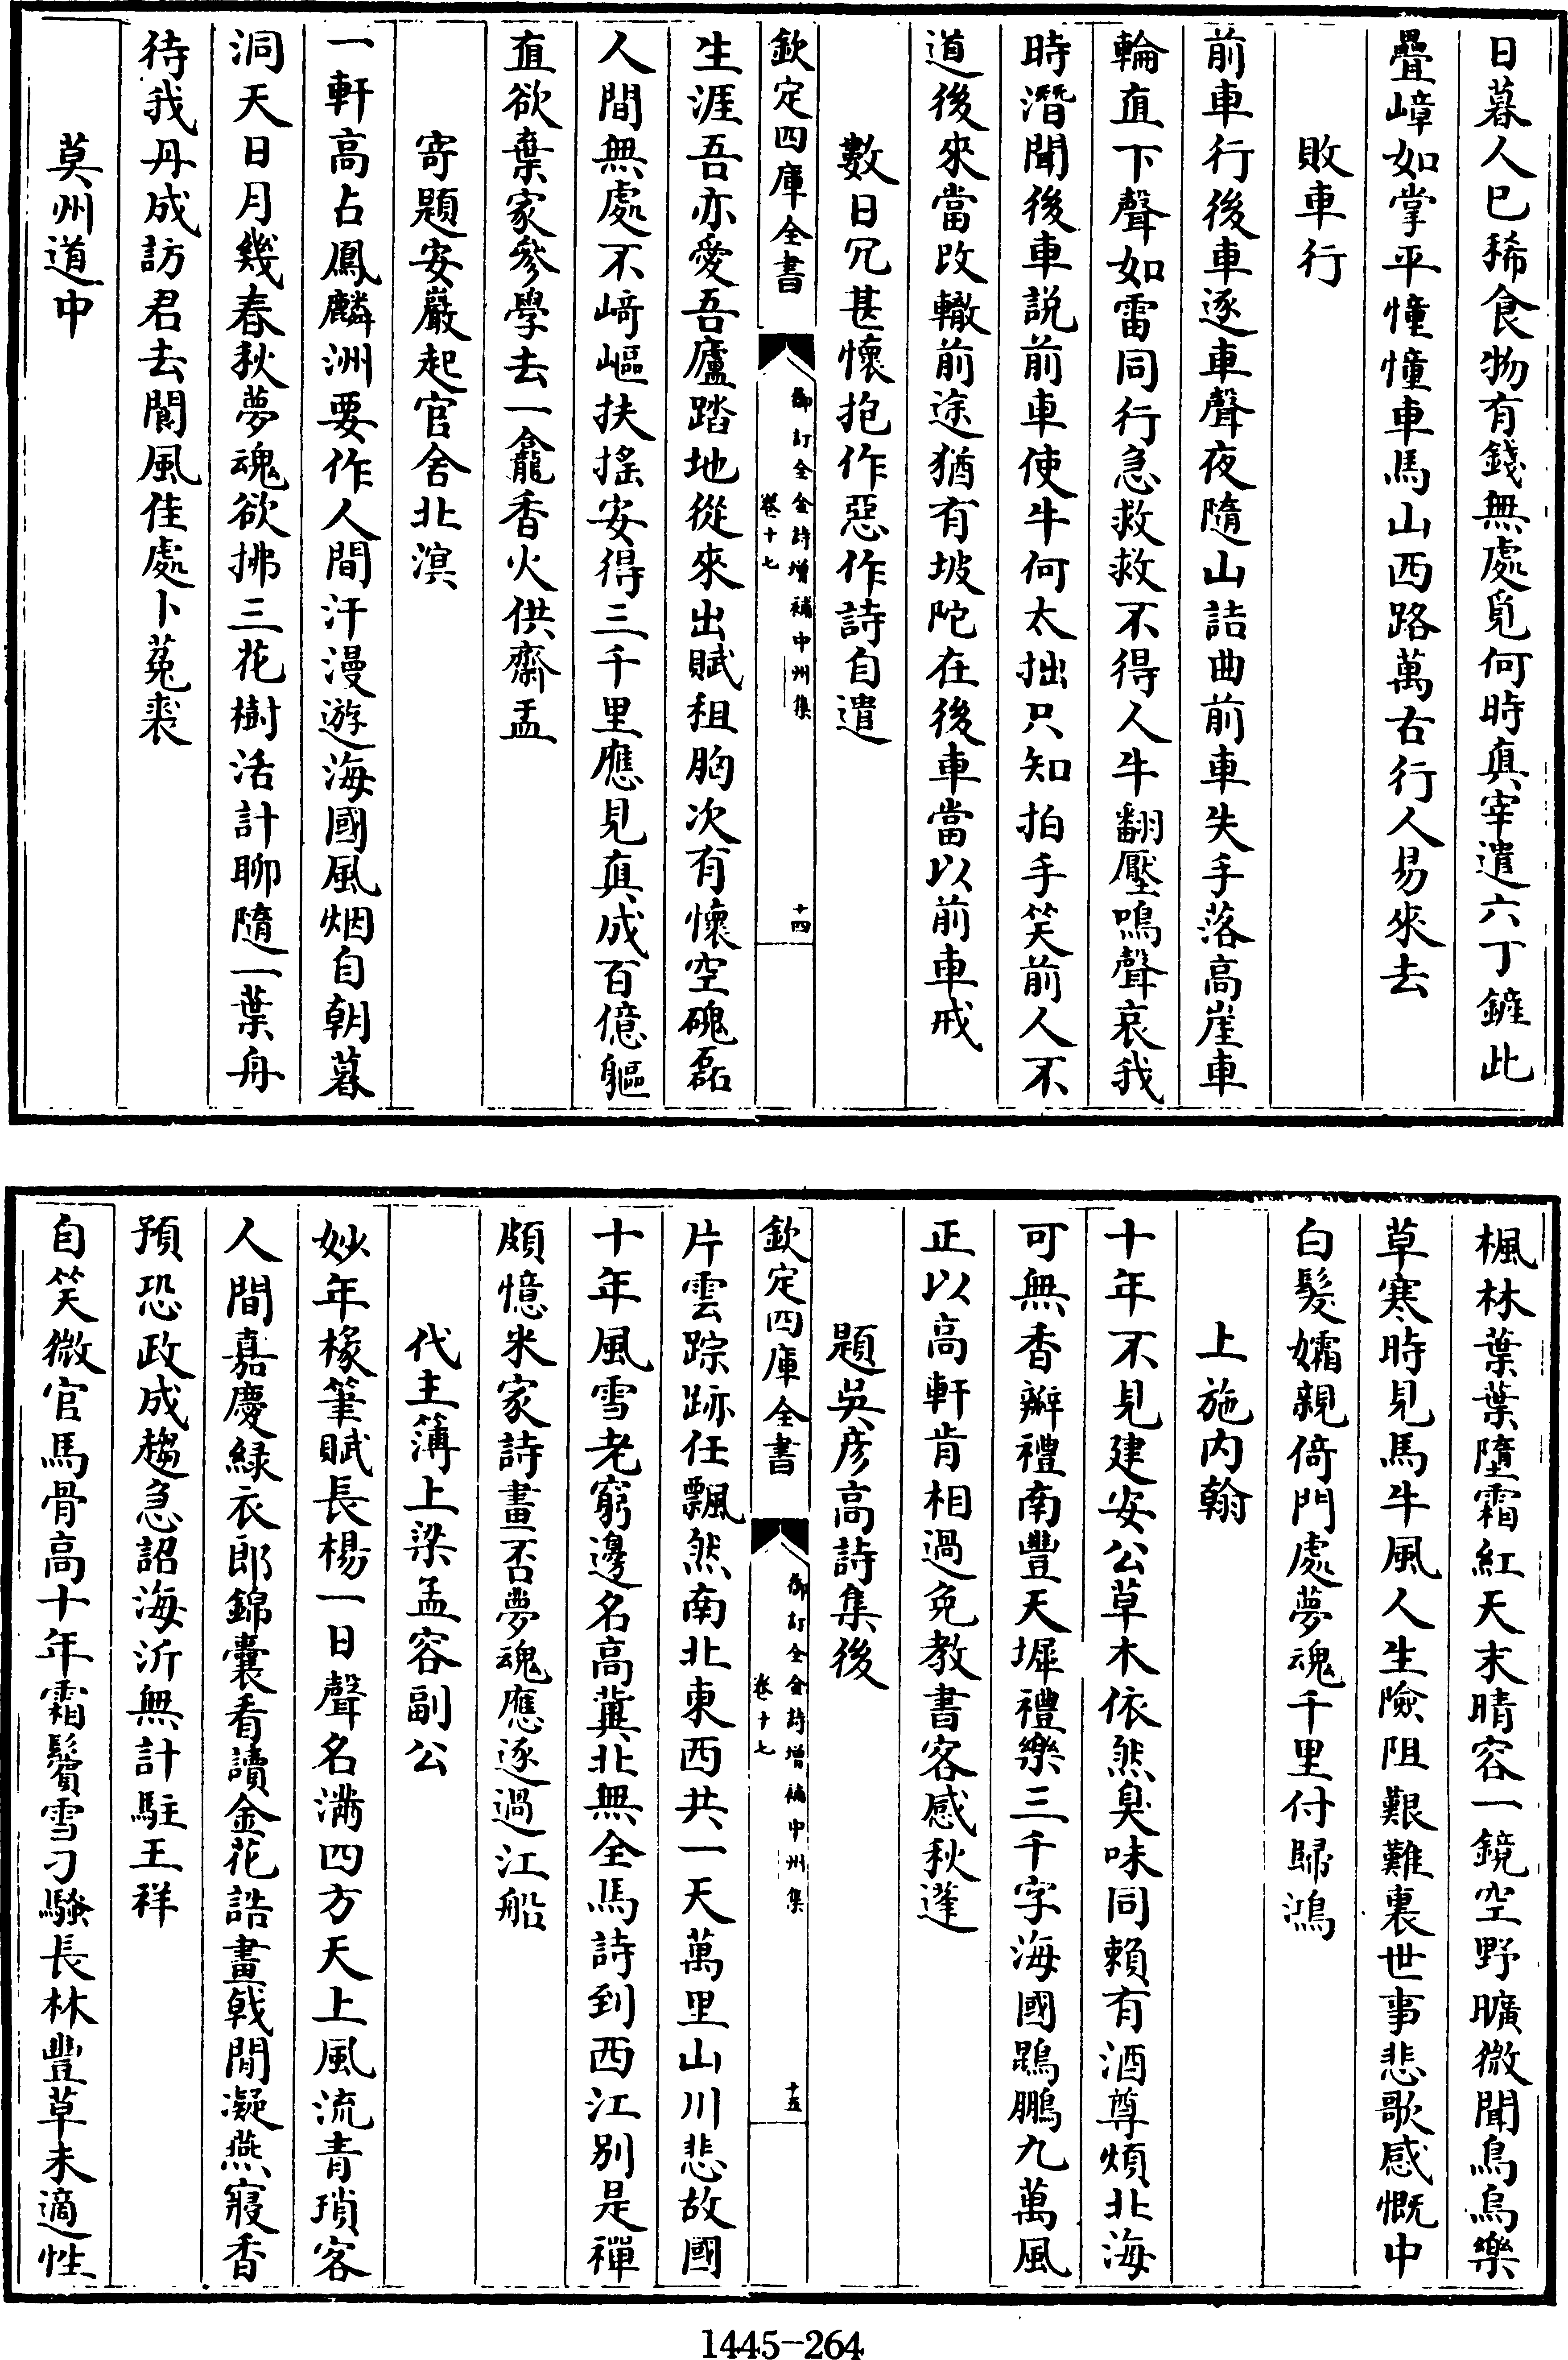 日暮人已稀食物有錢無處覓何時真宰遣六丁鏟此
疊嶂如掌平憧憧車馬山西路萬古行人易來去
敗車行
前車行後車逐車聲夜隨山詰曲前車失手落高崖車
輪直下聲如雷同行急救救不得人牛翻壓鳴聲哀我
時潛聞後車説前車使牛何太拙只知拍手笑前人不
道後來當改轍前途猶有坡陀在後車當以前車戒
數日冗甚懷抱作惡作詩自遣
欽定四庫全書
御訂全金詩增補中州集
卷十七
十四
生涯吾亦愛吾廬踏地從來出賦租胸次有懷空磈磊
人間無處不﨑嶇扶搖安得三千里應見真成百億軀
直欲棄家參學去一龕香火供齋盂
寄題安巖起官舍北溟
一軒高占鳳麟洲要作人間汗漫遊海國風烟自朝暮
洞天日月幾春秋夢魂欲拂三花樹活計聊隨一葉舟
待我丹成訪君去閬風佳處卜菟裘
莫州道中
楓林葉葉墮霜紅天末晴容一鏡空野曠微聞鳥烏樂
草寒時見馬牛風人生險阻艱難裏世事悲歌感慨中
白髮孀親倚門處夢魂千里付歸鴻
上施内翰
十年不見建安公草木依然臭味同賴有酒尊煩北海
可無香瓣禮南豐天墀禮樂三千字海國鵾鵬九萬風
正以高軒肯相過免教書客感秋蓬
題吳彦高詩集後
欽定四庫全書
御訂全金詩增補中州集
卷十七
十五
片雲踪跡任飄然南北東西共一天萬里山川悲故國
十年風雪老窮邊名高冀北無全馬詩到西江别是禪
頗憶米家詩畫否夢魂應逐過江船
代主簿上梁孟容副公
妙年椽筆賦長楊一日聲名滿四方天上風流青瑣客
人間嘉慶緑衣郎錦囊看讀金花誥畫戟閒凝燕寢香
預恐政成趨急詔海沂無計駐王祥
自笑微官馬骨高十年霜鬢雪刁騷長林豐草未適性
1445-264